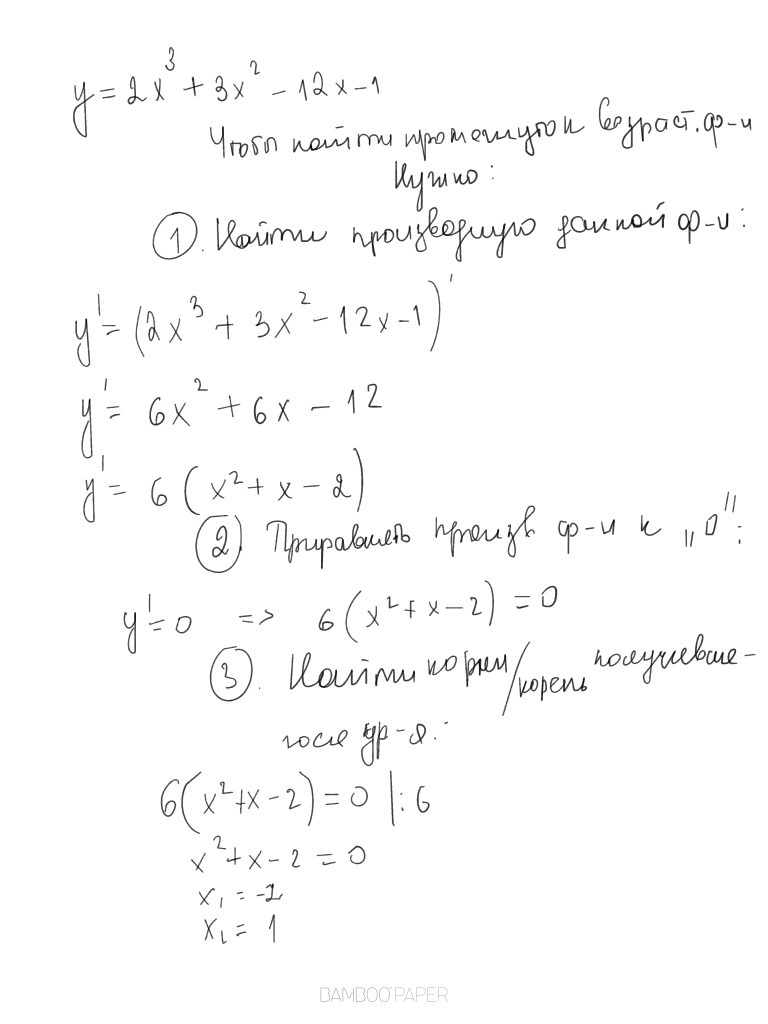 y = 2x³ + 3x² - 12x - 1
Чтобы найти промежуток возраст. ф-и
Нужно:
① Найти производную данной ф-и:
y' = (2x³ + 3x² - 12x - 1)'
y' = 6x² + 6x - 12
y' = 6(x² + x - 2)
② Приравнять произв ф-и к „0":
y' = 0 => 6(x² + x - 2) = 0
③. Найти корни/корень получивше-
гося ур-я:
6(x² + x - 2) = 0 |: 6
x² + x - 2 = 0
x₁ = -2
x₂ = 1
BAMBOO PAPER